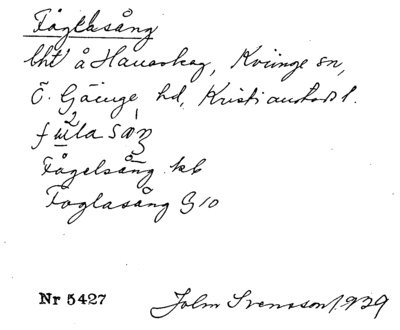 Fåglasång
lht å Hanaskog, Kviinge sn,
Ö. Göinge hd, Kristianstads l.
Fågelsång kb
Foglasång G 10
Nr 5427 John Svensson 1929